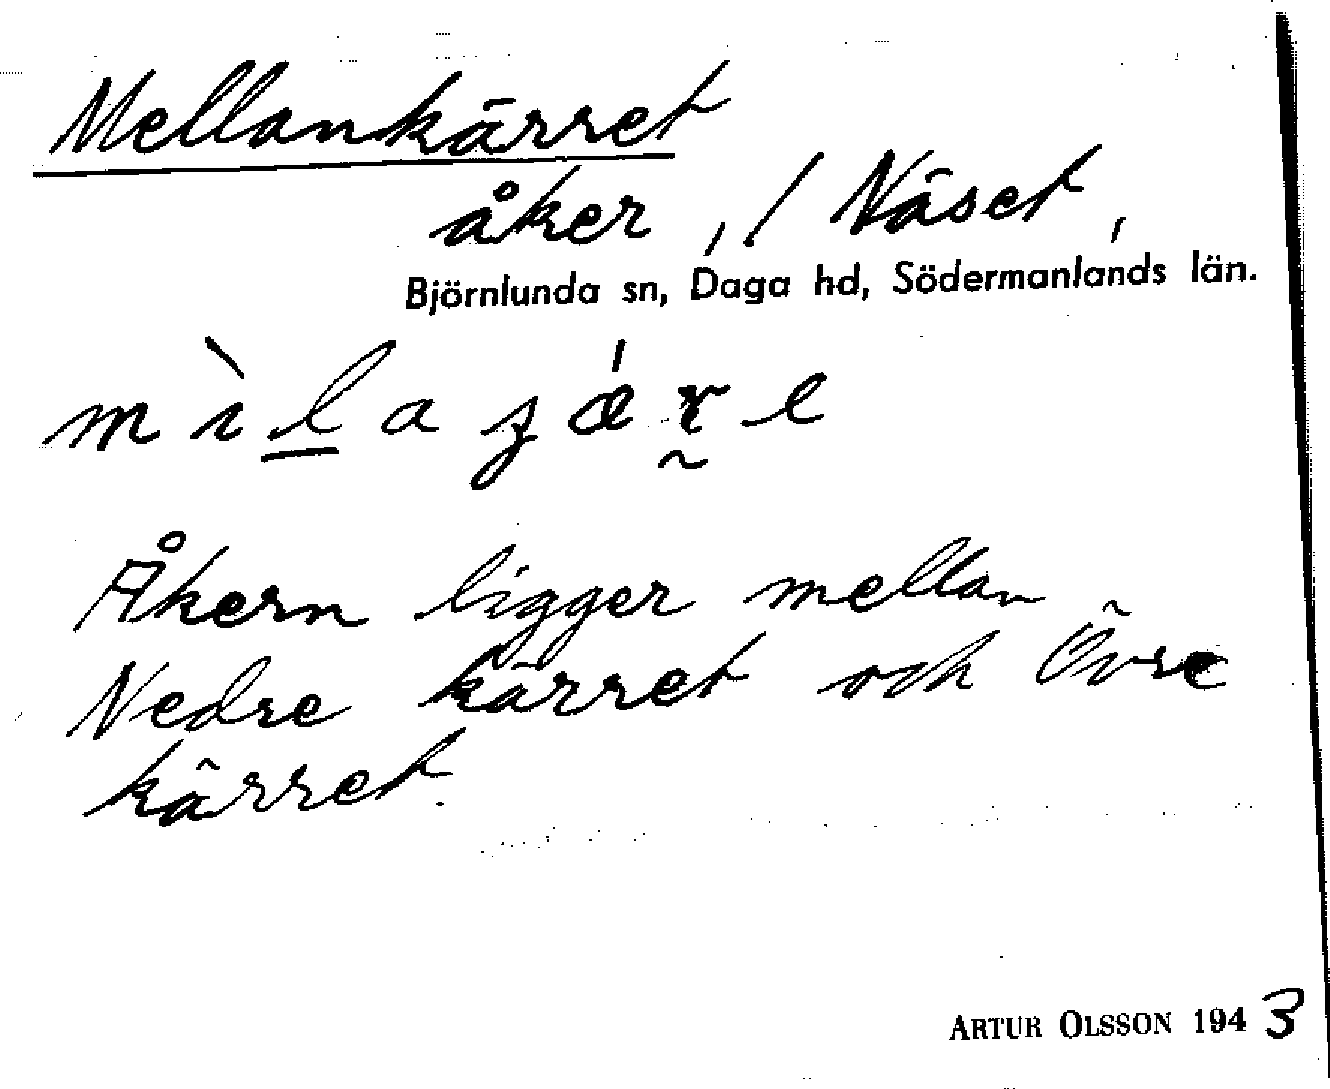 Mellankärret
åker, / Näset,
Björnlunda sn, Daga hd, Södermanlands län.
Åkern ligger mellan
Nedre kärret och Övre
kärret.
ARTUR OLSSON 1943